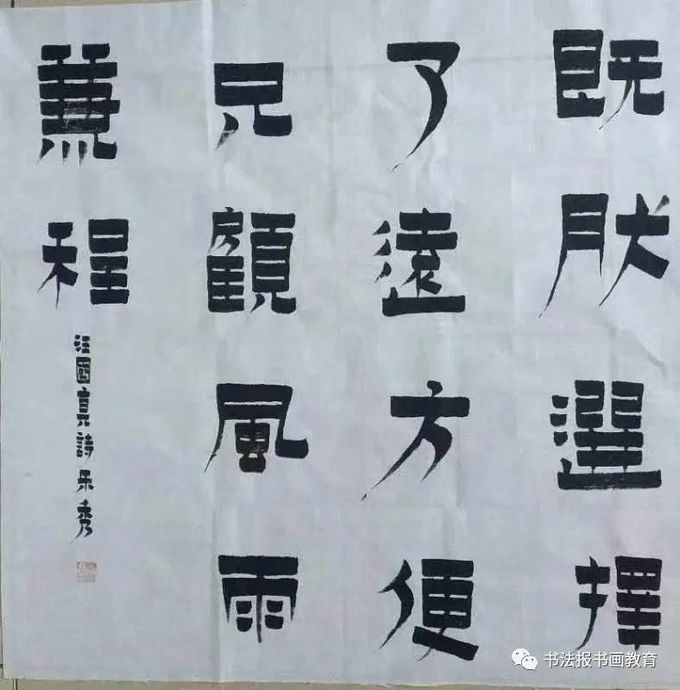 既肰選擇
了遠方便
只顧風雨
兼程
汪國真詩 秀
书法报书画教育